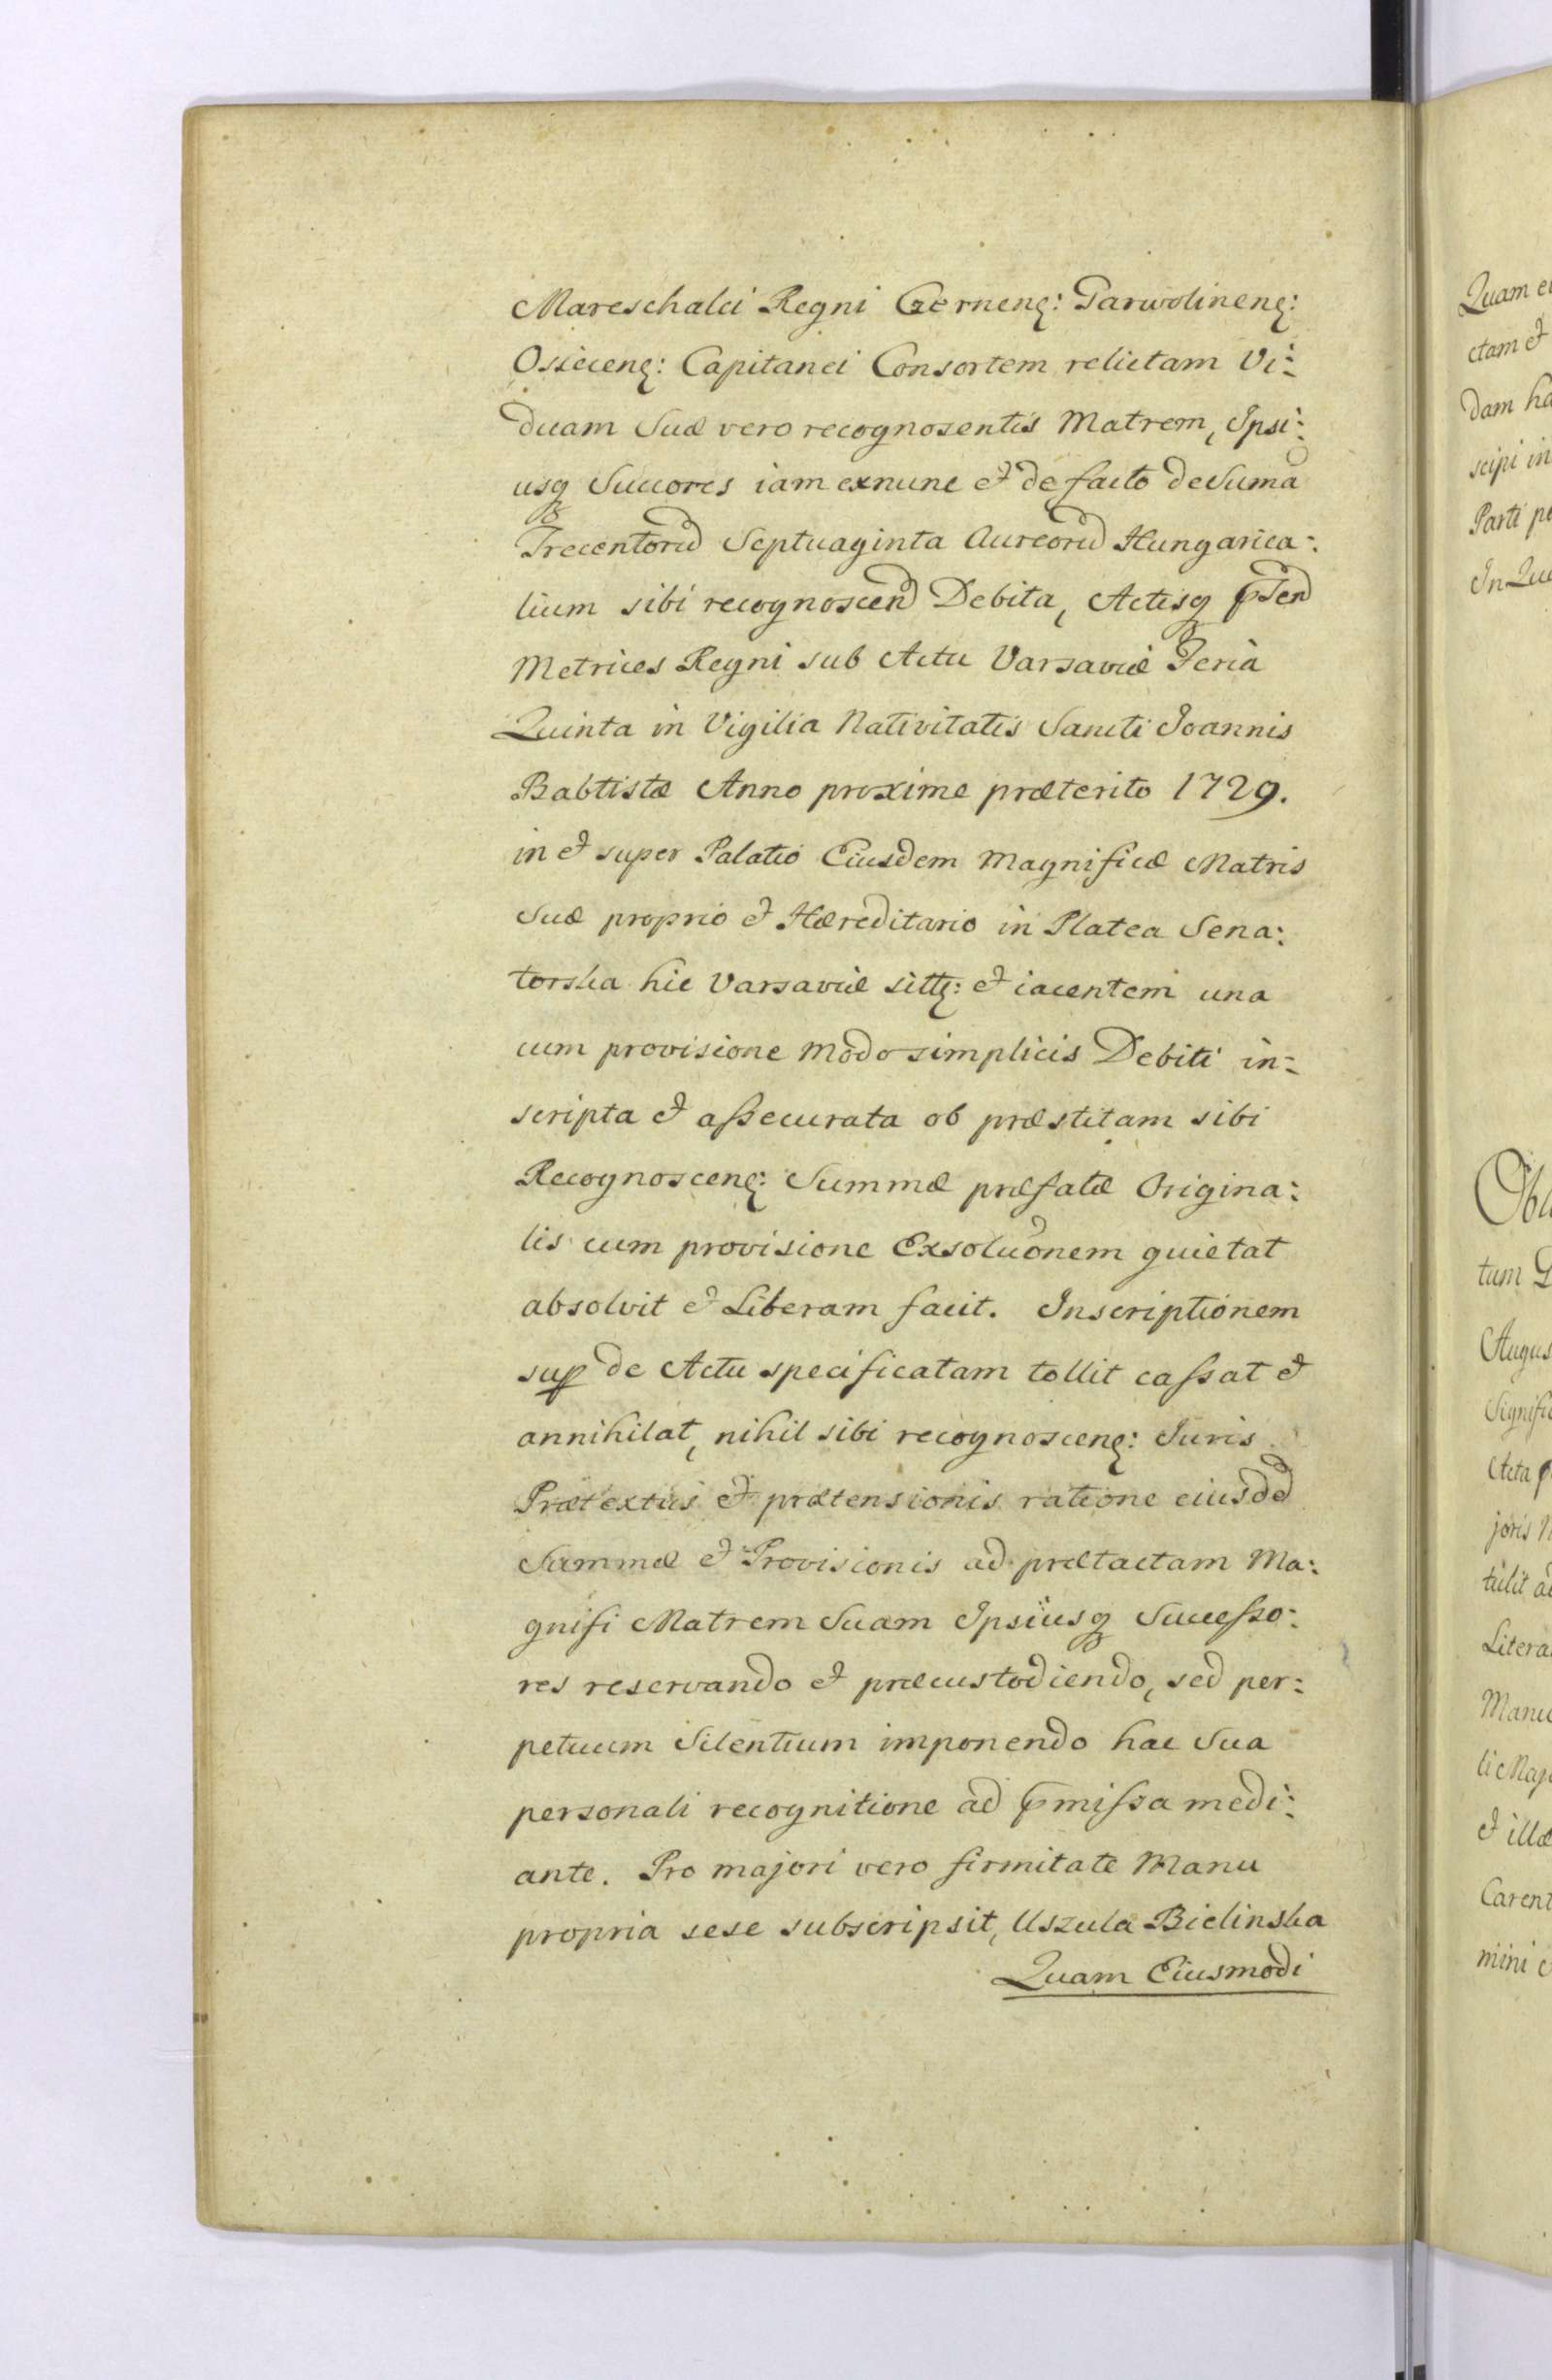 Mareschalci Regni Czerneng: Garwolineng:
Osieceng: Capitanei Consortem relictam Vi:
duam Suæ vero recognosentis Matrem, Ipsi:
usq Succores iam exnunc et de facto de Suma
Trecentoru Septuaginta Aureoru Hungarica:
lium sibi recognoscen Debita, Actisq pnsen
Metrices Regni sub Actu Varsaviæ Feria
Quinta in Vigilia Nativitatis Sancti Joannis
Babtistæ Anno proxime præterito 1729.
in et super Palatio Eiusdem Magnificæ Matris
Suæ proprio et Hæreditario in Platea Sena:
torska hic Varsaviæ sittg: et iacentem una
cum provisione modo simplicis Debiti in:
scripta et assecurata ob præstitam sibi
Recognosceng: Summæ præfatæ Origina:
lis cum provisione Exsoluonem quietat
absolvit et Liberam facit. Inscriptionem
sup de Actu specificatam tollit cassat et
annihilat, nihil sibi recognosceng: Juris
Prætextus et prætensionis ratione eiusde
Summæ et Provisionis ad prætactam Ma:
gnifi Matrem Suam Ipsiusq Successo:
res reservando et præcustodiendo, sed per:
petuum Silentium imponendo hac Sua
personali recognitione ad pmissa medi:
ante. Pro majori vero firmitate Manu
propria sese subscripsit, Uszula Bielinska
Quam Eiusmodi
Quam
ctam et
dam
scipi in
Parti
In
tum
Augus
Signifi
Acta
joris
tulit
Litera
Manu
et illæ
Carent
mini